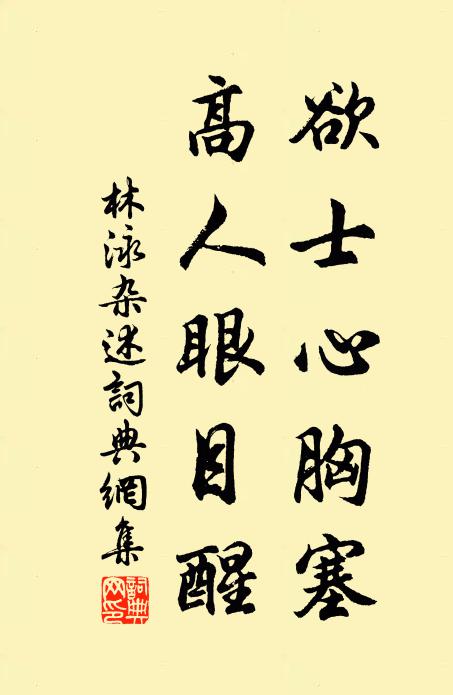 欲士心胸塞
高人眼目醒
林泳杂述詞典網集
詞典网印